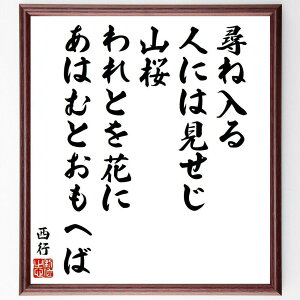 尋ね入る
人には見せじ
山桜
われとを花に
あはむとおもへば
西行